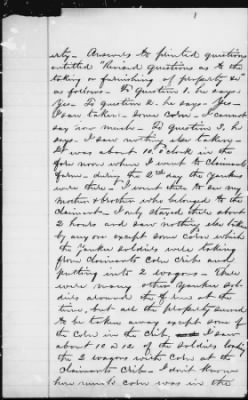 erty - Answers to printed questions
entitled "Printed Questions as to the
taking or furnishing of property &c"
as follows - To Question 1. he says -
Yes - To question 2. he says - Yes -
I saw taken - Some Corn - I cannot
say how much - To Question 3, he
says - I saw nothing else taken -
It was about 10 o'clock in the
fore noon when I went to Claimants
farm - during the 2nd day the Yankees
were there - I went there to see my
Mother & brother who belonged to the
Claimant - I only stayed there about
2 hours and saw nothing else taken
by any one except some corn which
the Yankee soldiers were taking
from Claimants corn cribs and
putting into 2 wagons - There
were many other Yankee Sol-
diers around the place at the
time, but all the property seemed
to be taken away except some of
the Corn in the Crib, I saw
about 10 or 12 of the soldiers loading
the 2 wagons with corn at the
Claimants Crib - I don't know
how much corn was in the